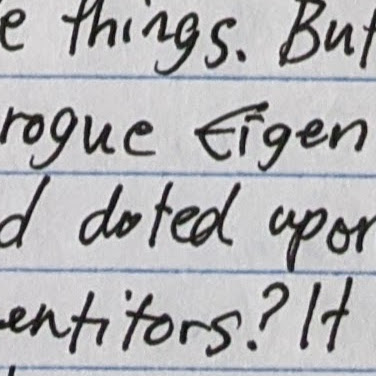 e things. But
rogue Eigen
d doted upon
entitors? It